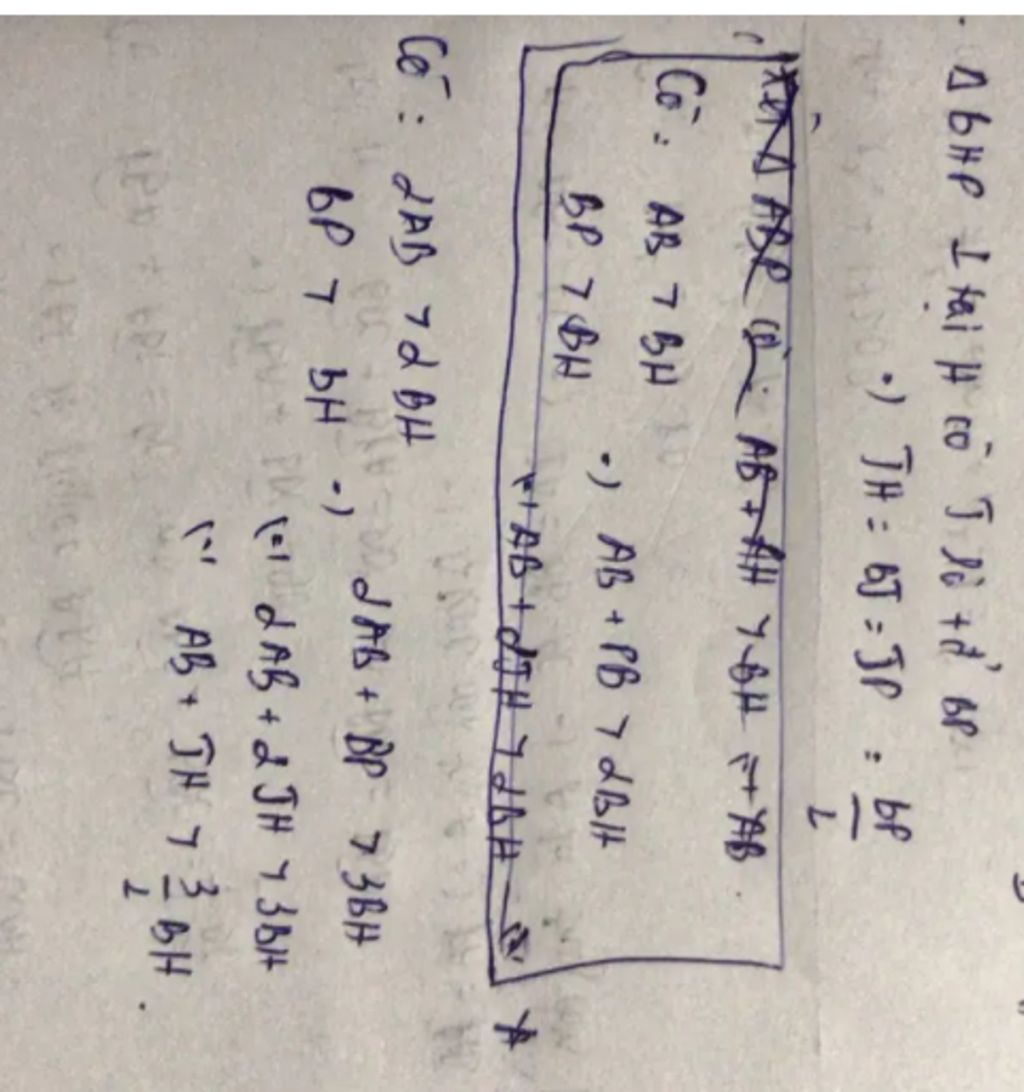 Δ BHP ⊥ tại H có J là t đ' BP
•) JH = BJ = JP = BP/2
Xét Δ ABP có: AB + AH > BH => AB
Có: AB > BH
BP > BH
•) AB + PB > 2BH
<=> AB + 2JH > 2BH
Có: 2AB > 2BH
BP > BH
•) 2AB + BP > 3BH
<=> 2AB + 2JH > 3BH
<=> AB + JH > 3/2 BH.